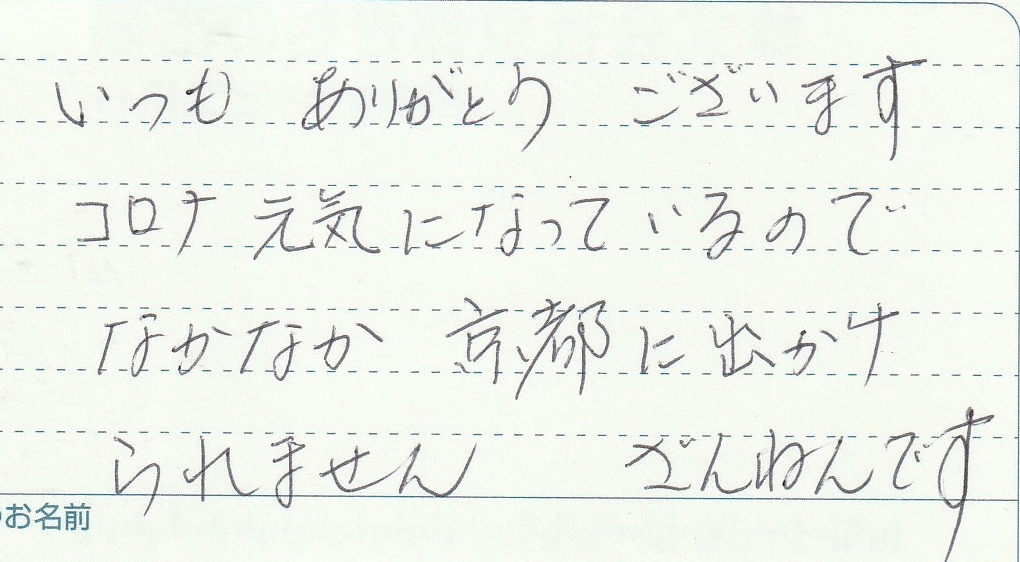 いつも ありがとう ございます
コロナ 元気になっているので
なかなか 京都に出かけ
られません ざんねんです
お名前